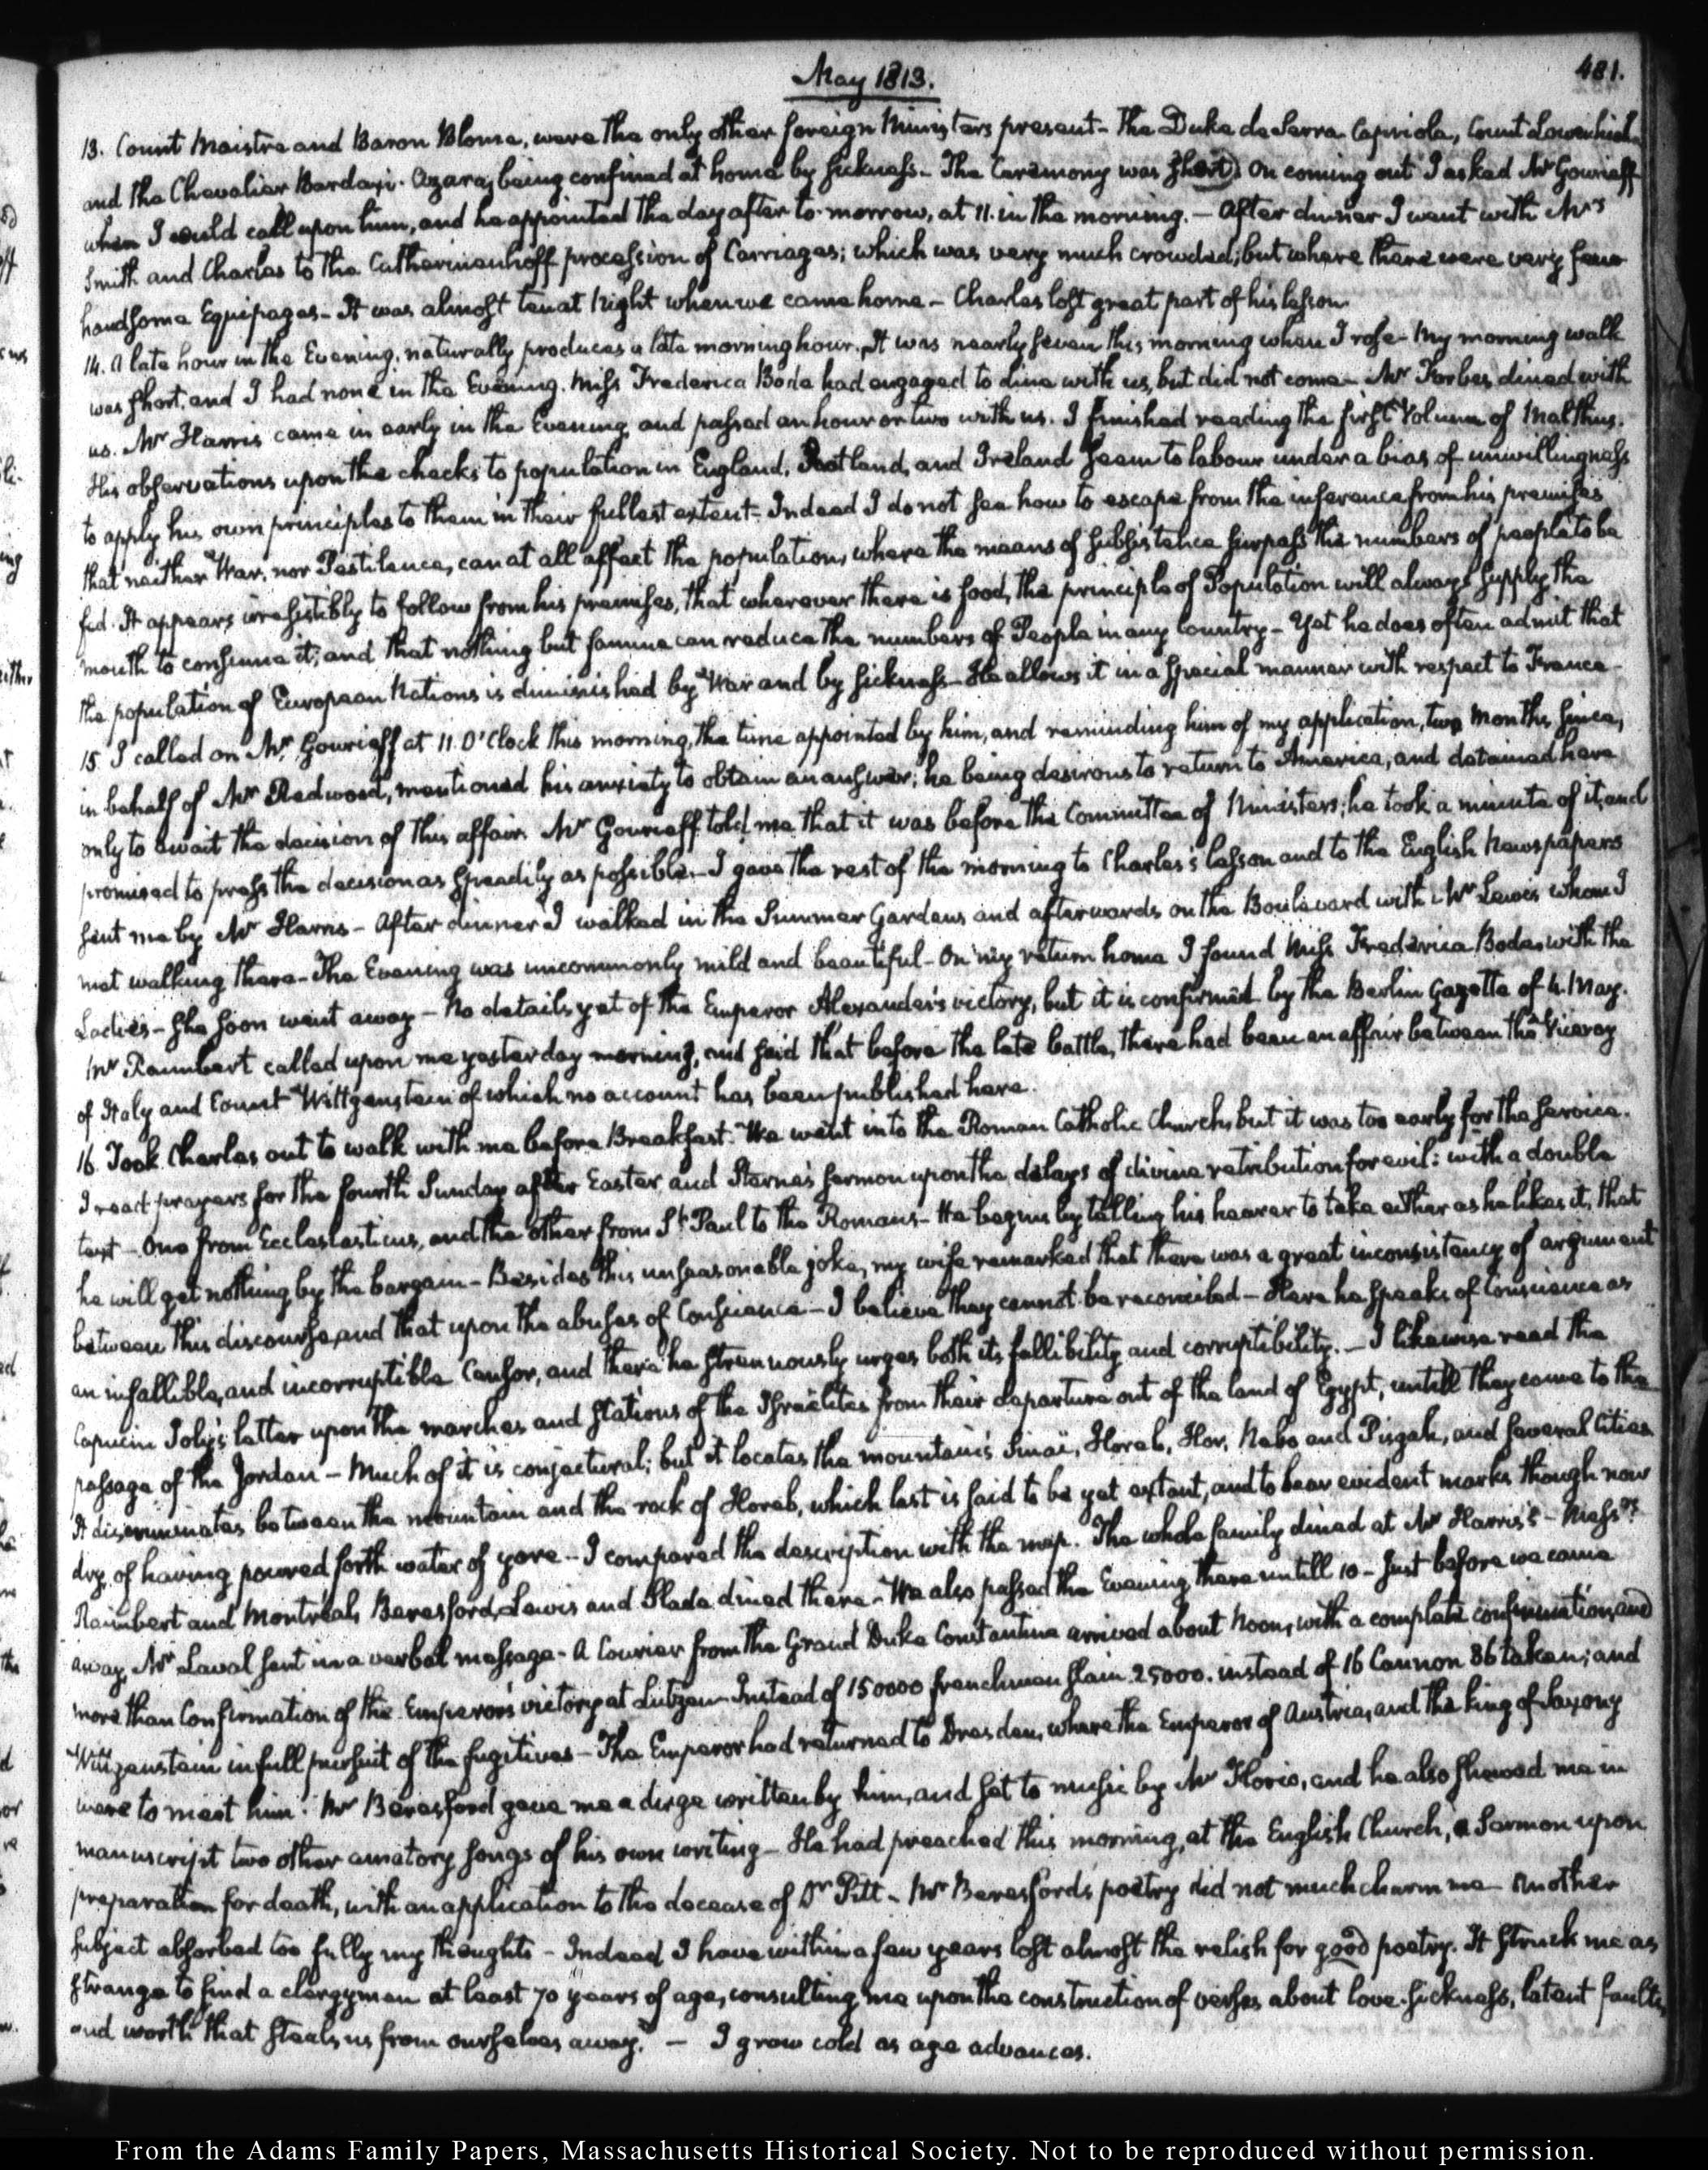 May 1813.
481.
13. Count Maistre and Baron Blome, were the only other foreign Ministers present - The Duke de Serra Capriola, Count Lowenhielm
and the Chevalier Bardaxi. Azara, being confined at home by sickness - The Ceremony was short. On coming out I asked Mr Gourieff
when I could call upon him, and he appointed the day after to-morrow, at 11. in the morning. - After dinner I went with Mrs
Smith and Charles to the Catherinenhoff procession of Carriages; which was very much crowded; but where there were very few
handsome Equipages - It was almost ten at Night when we came home - Charles lost great part of his lesson
14. A late hour in the Evening, naturally produces a late morning hour. It was nearly seven this morning when I rose - My morning walk
was short, and I had none in the Evening. Miss Frederica Bode had engaged to dine with us, but did not come - Mr Forbes dined with
us. Mr Harris came in early in the Evening, and passed an hour or two with us. I finished reading the first Volume of Malthus.
His observations upon the checks to population in England, Scotland, and Ireland seem to labour under a bias of unwillingness
to apply his own principles to them in their fullest extent - Indeed I do not see how to escape from the inference from his premises
that neither War, nor Pestilence, can at all affect the population, where the means of subsistence surpass the numbers of people to be
fed. It appears irresistibly to follow from his premises, that wherever there is food, the principle of Population will always supply the
mouth to consume it; and that nothing but famine can reduce the numbers of People in any Country - Yet he does often admit that
the population of European Nations is diminished by War and by sickness - He allows it in a special manner with respect to France -
15. I called on Mr Gourieff at 11. O'Clock this morning, the time appointed by him, and reminding him of my application, two Months since,
in behalf of Mr Redwood, mentioned his anxiety to obtain an answer; he being desirous to return to America, and detained here
only to await the decision of this affair. Mr Gourieff told me that it was before the Committee of Ministers; he took a minute of it, and
promised to press the decision as speedily as possible. - I gave the rest of the morning to Charles's lesson and to the English Newspapers
sent me by Mr Harris - After dinner I walked in the Summer Gardens and afterwards on the Boulevard with Mr Lewis whom I
met walking there - The Evening was uncommonly mild and beautiful - On my return home I found Miss Frederica Bode with the
Ladies - She soon went away - No details yet of the Emperor Alexander's victory, but it is confirmed by the Berlin Gazette of 4. May.
Mr Raimbert called upon me yesterday morning, and said that before the late battle, there had been an affair between the Viceroy
of Italy and Count Wittgenstein of which no account has been published here.
16. Took Charles out to walk with me before Breakfast. We went into the Roman Catholic Church, but it was too early for the service.
I read prayers for the fourth Sunday after Easter and Sterne's sermon upon the delays of divine retribution for evil: with a double
text - One from Ecclesiasticus, and the other from St. Paul to the Romans - He begins by telling his hearer to take either as he likes it, that
he will get nothing by the bargain - Besides this unseasonable joke, my wife remarked that there was a great inconsistency of argument
between this discourse, and that upon the abuses of Conscience - I believe they cannot be reconciled - Here he speaks of Conscience as
an infallible, and incorruptible Censor, and there he strenuously urges both its fallibility and corruptibility. - I likewise read the
Capucin Joly's letter upon the marches and stations of the Israelites from their departure out of the land of Egypt, untill they came to the
passage of the Jordan - Much of it is conjectural; but it locates the mountains Sinaï, Horeb, Hor, Nebo and Pisgah, and several Cities
It discriminates between the mountain and the rock of Horeb, which last is said to be yet extant, and to bear evident marks though now
dry, of having poured forth water of yore - I compared the description with the map. The whole family dined at Mr Harris's - Messrs
Raimbert and Montréal, Beresford, Lewis and Slade dined there - We also passed the Evening there untill 10 - Just before we came
away, Mr Laval sent in a verbal message - A Courier from the Grand Duke Constantine arrived about Noon, with a complete confirmation, and
more than Confirmation of the Emperor's victory at Lutzen - Instead of 15 0000 frenchmen slain 25000. instead of 16 Cannon 36 taken; and
Wittgenstein in full pursuit of the fugitives - The Emperor had returned to Dresden, where the Emperor of Austria, and the king of Saxony
were to meet him. Mr Beresford gave me a dirge written by him, and set to music by Mr Florio, and he also shewed me in
manuscript two other amatory songs of his own writing - He had preached this morning, at the English Church, a Sermon upon
preparation for death, with an application to the decease of Dr Pitt - Mr Beresford's poetry did not much charm me - Another
subject absorbed too fully my thoughts - Indeed I have within a few years lost almost the relish for good poetry. It struck me as
strange to find a clergyman at least 70 years of age, consulting me upon the construction of verses about love-sickness, latent faults,
and worth "that steals us from ourselves away." - I grow cold as age advances.
From the Adams Family Papers, Massachusetts Historical Society. Not to be reproduced without permission.